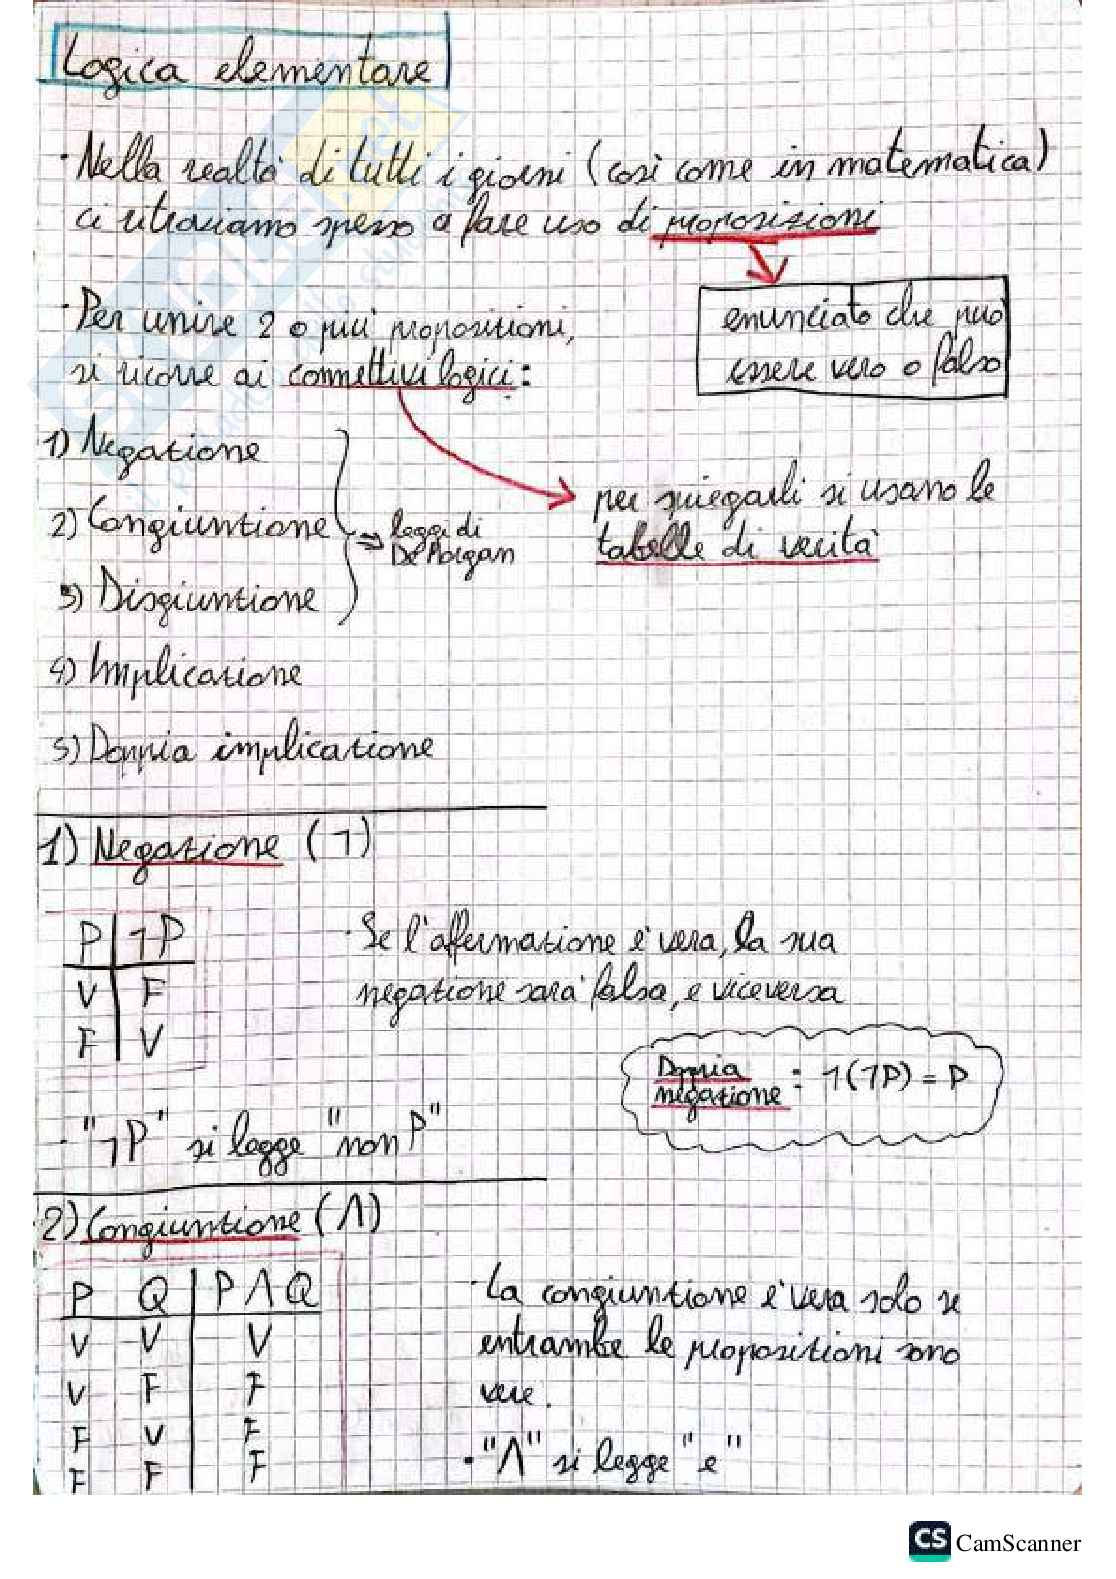 Logica elementare
· Nella realtà di tutti i giorni (così come in matematica)
ci ritroviamo spesso a fare uso di proposizioni
enunciato che può
essere vero o falso
· Per unire 2 o più proposizioni,
si ricorre ai connettivi logici:
per spiegarli si usano le
tabelle di verità
1) Negazione
2) Congiunzione
3) Disgiunzione
⇒ leggi di
De Morgan
4) Implicazione
5) Doppia implicazione
1) Negazione (¬)
P | ¬P
V | F
F | V
· Se l'affermazione è vera, la sua
negazione sarà falsa, e viceversa
Doppia
negazione : ¬(¬P) = P
· "¬P" si legge "non P"
2) Congiunzione (Λ)
P Q | P Λ Q
V V | V
V F | F
F V | F
F F | F
· La congiunzione è vera solo se
entrambe le proposizioni sono
vere.
· "Λ" si legge "e"
CS CamScanner